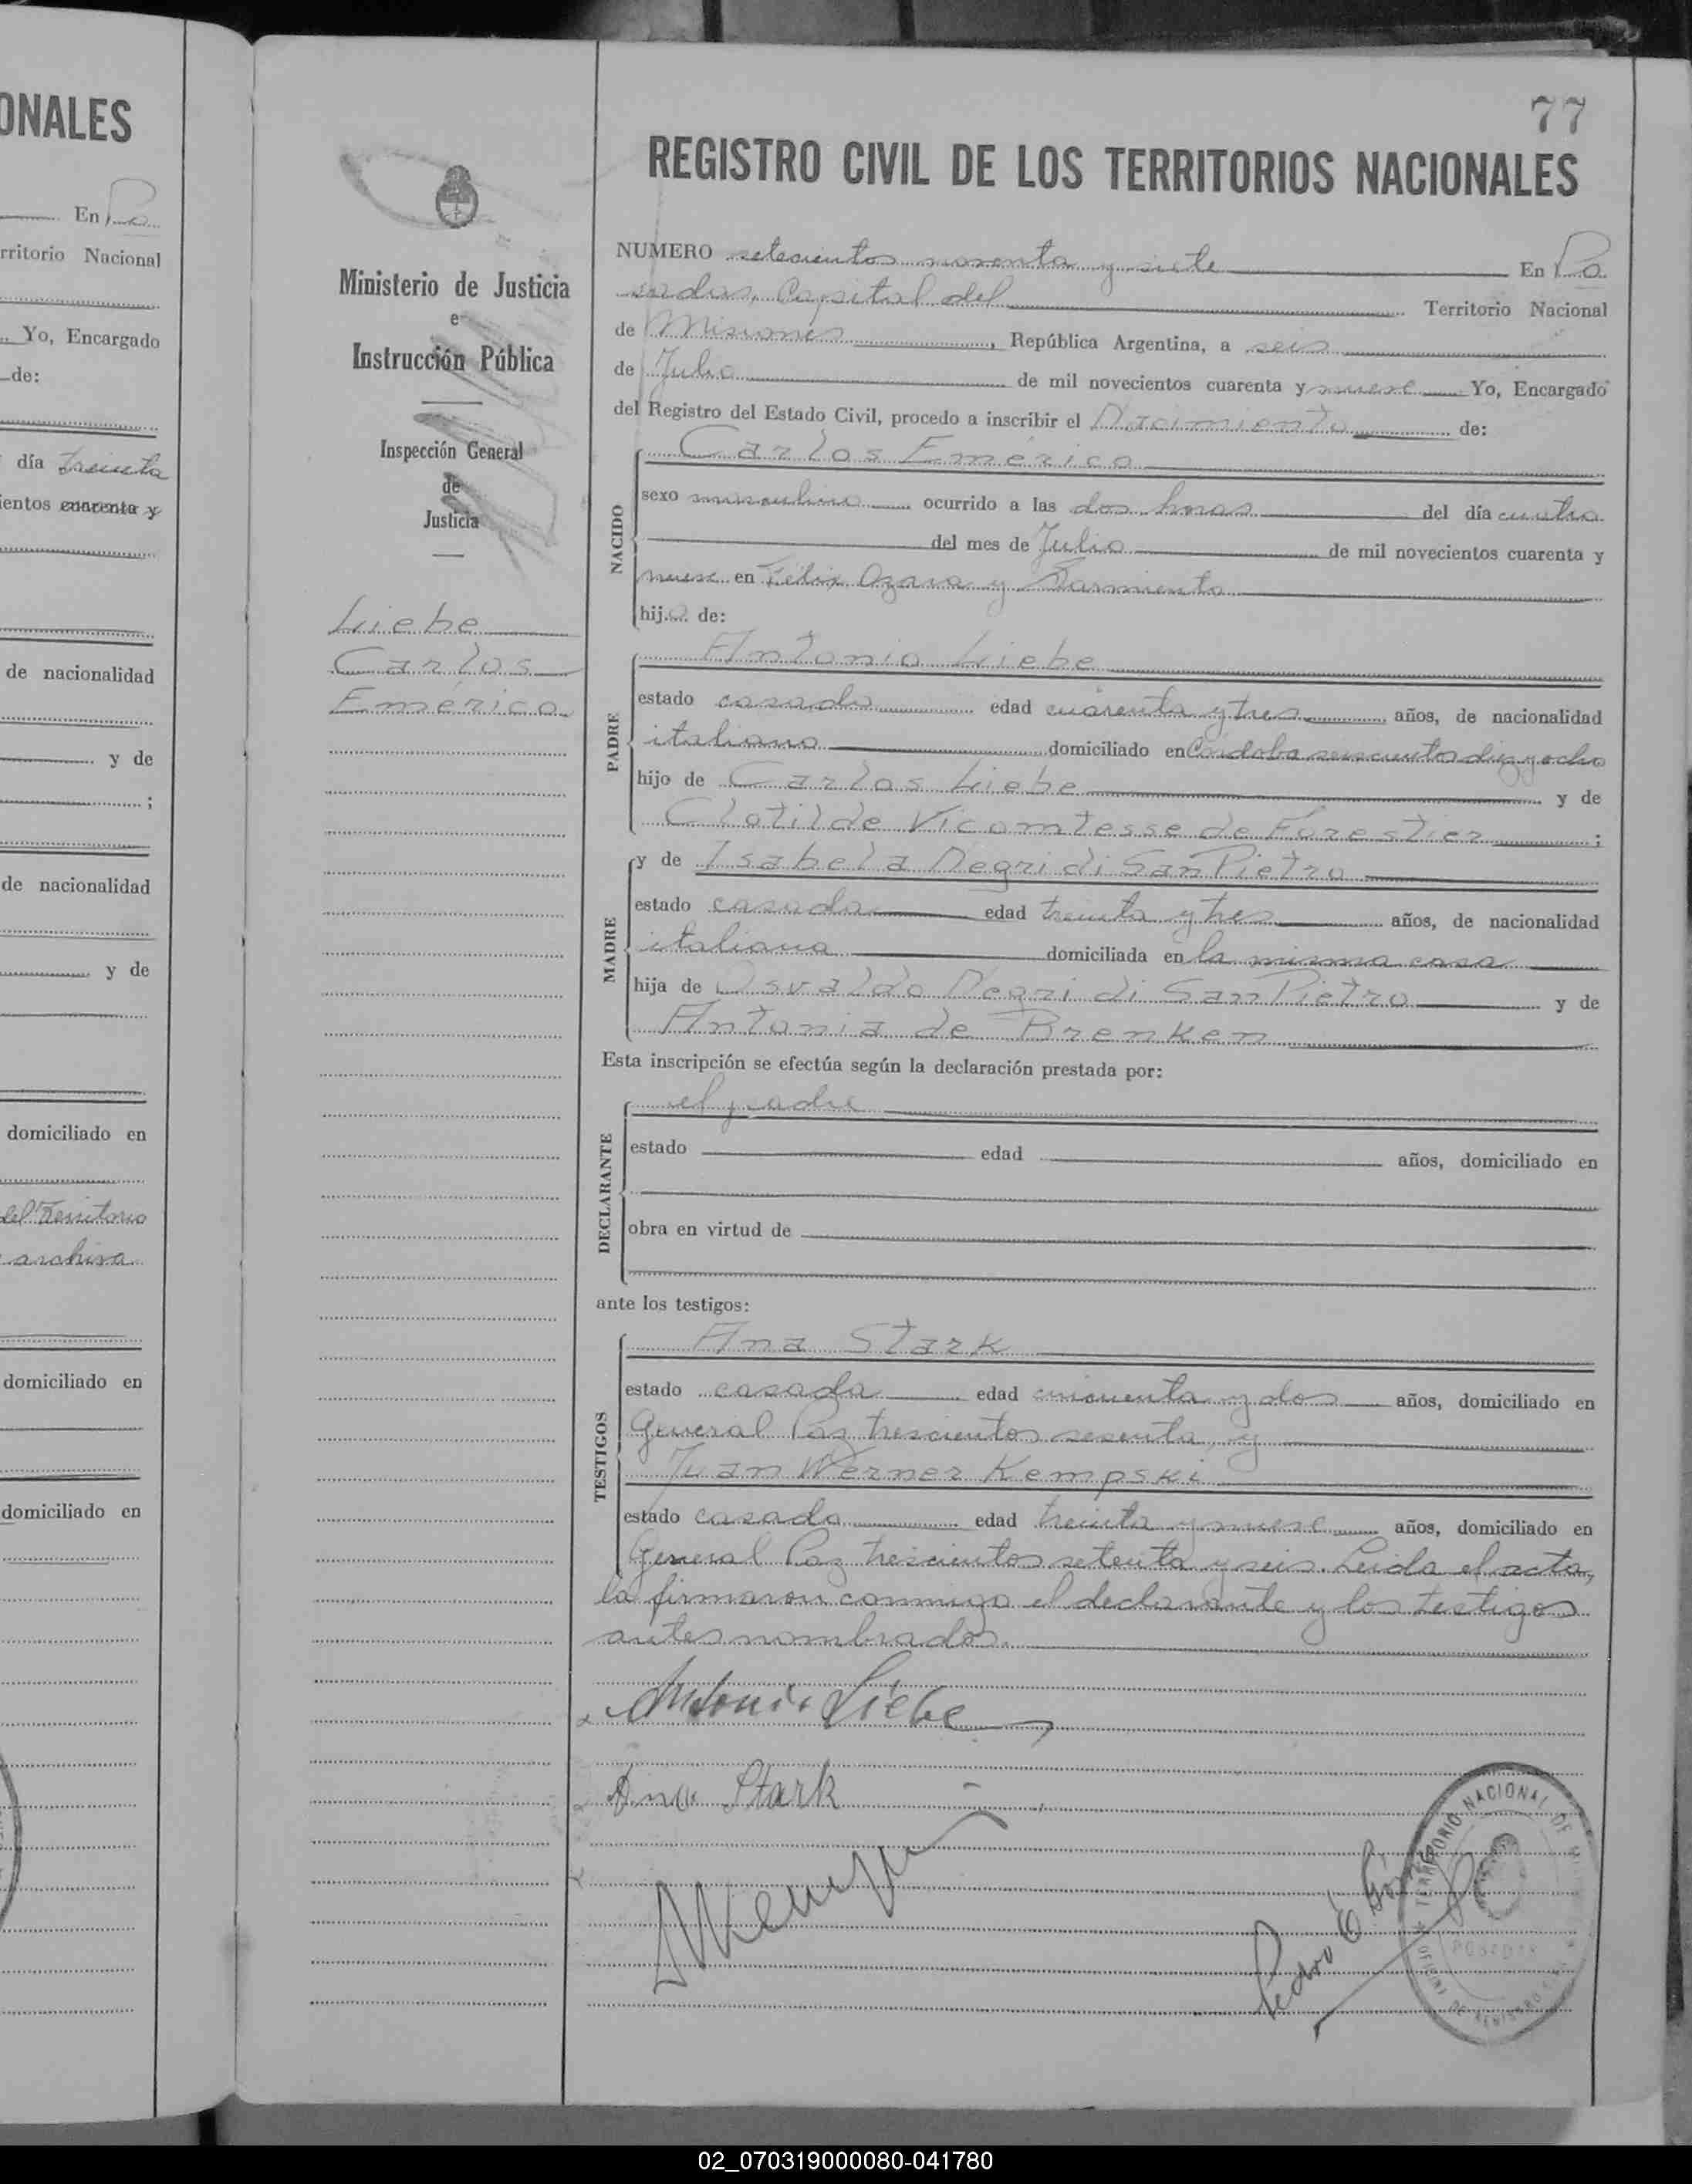 ONALES
En Po
rritorio Nacional
Yo, Encargado
de:
día treinta
ientos cuarenta y
de nacionalidad
y de
;
de nacionalidad
y de
domiciliado en
del Territorio
archiva
domiciliado en
domiciliado en
Ministerio de Justicia
e
Instrucción Pública
Inspección General
de
Justicia
Liebe
Carlos
Emérico
77
REGISTRO CIVIL DE LOS TERRITORIOS NACIONALES
NUMERO setecientos noventa y siete En Po
sadas, Capital del Territorio Nacional
de Misiones, República Argentina, a seis
de Julio de mil novecientos cuarenta y nueve Yo, Encargado
del Registro del Estado Civil, procedo a inscribir el Nacimiento de:
NACIDO
Carlos Emérico
sexo masculino ocurrido a las dos horas del día cuatro
del mes de Julio de mil novecientos cuarenta y
nueve en Félix Azara y Sarmiento
hijo de:
PADRE
Antonio Liebe
estado casado edad cuarenta y tres años, de nacionalidad
italiano domiciliado en Córdoba seiscientos diez y ocho
hijo de Carlos Liebe y de
Clotilde Vicomtesse de Forestier ;
MADRE
y de Isabela Negri di San Pietro
estado casada edad treinta y tres años, de nacionalidad
italiana domiciliada en la misma casa
hija de Osvaldo Negri di San Pietro y de
Antonia de Brenken
Esta inscripción se efectúa según la declaración prestada por:
DECLARANTE
el padre
estado edad años, domiciliado en
obra en virtud de
ante los testigos:
TESTIGOS
Ana Stark
estado casada edad cincuenta y dos años, domiciliado en
General Paz trescientos sesenta, y
Juan Werner Kempski
estado casado edad treinta y nueve años, domiciliado en
General Paz trescientos setenta y seis. Leída el acta,
la firmaron conmigo el declarante y los testigos
antes nombrados.
Antonio Liebe
Ana Stark
Pedro
TERRITORIO NACIONAL DE
POSADAS
OFICINA DE REGISTRO
02_070319000080-041780